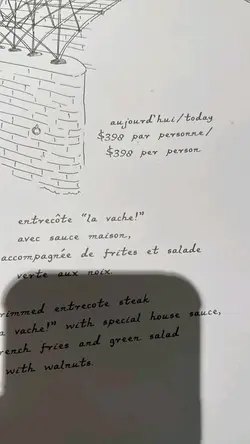 aujourd'hui/today
$398 par personne/
$398 per person
entrecôte "la vache!"
avec sauce maison,
accompagnée de frites et salade
verte aux noix.
rimmed entrecote steak
a vache!" with special house sauce,
rench fries and green salad
with walnuts.